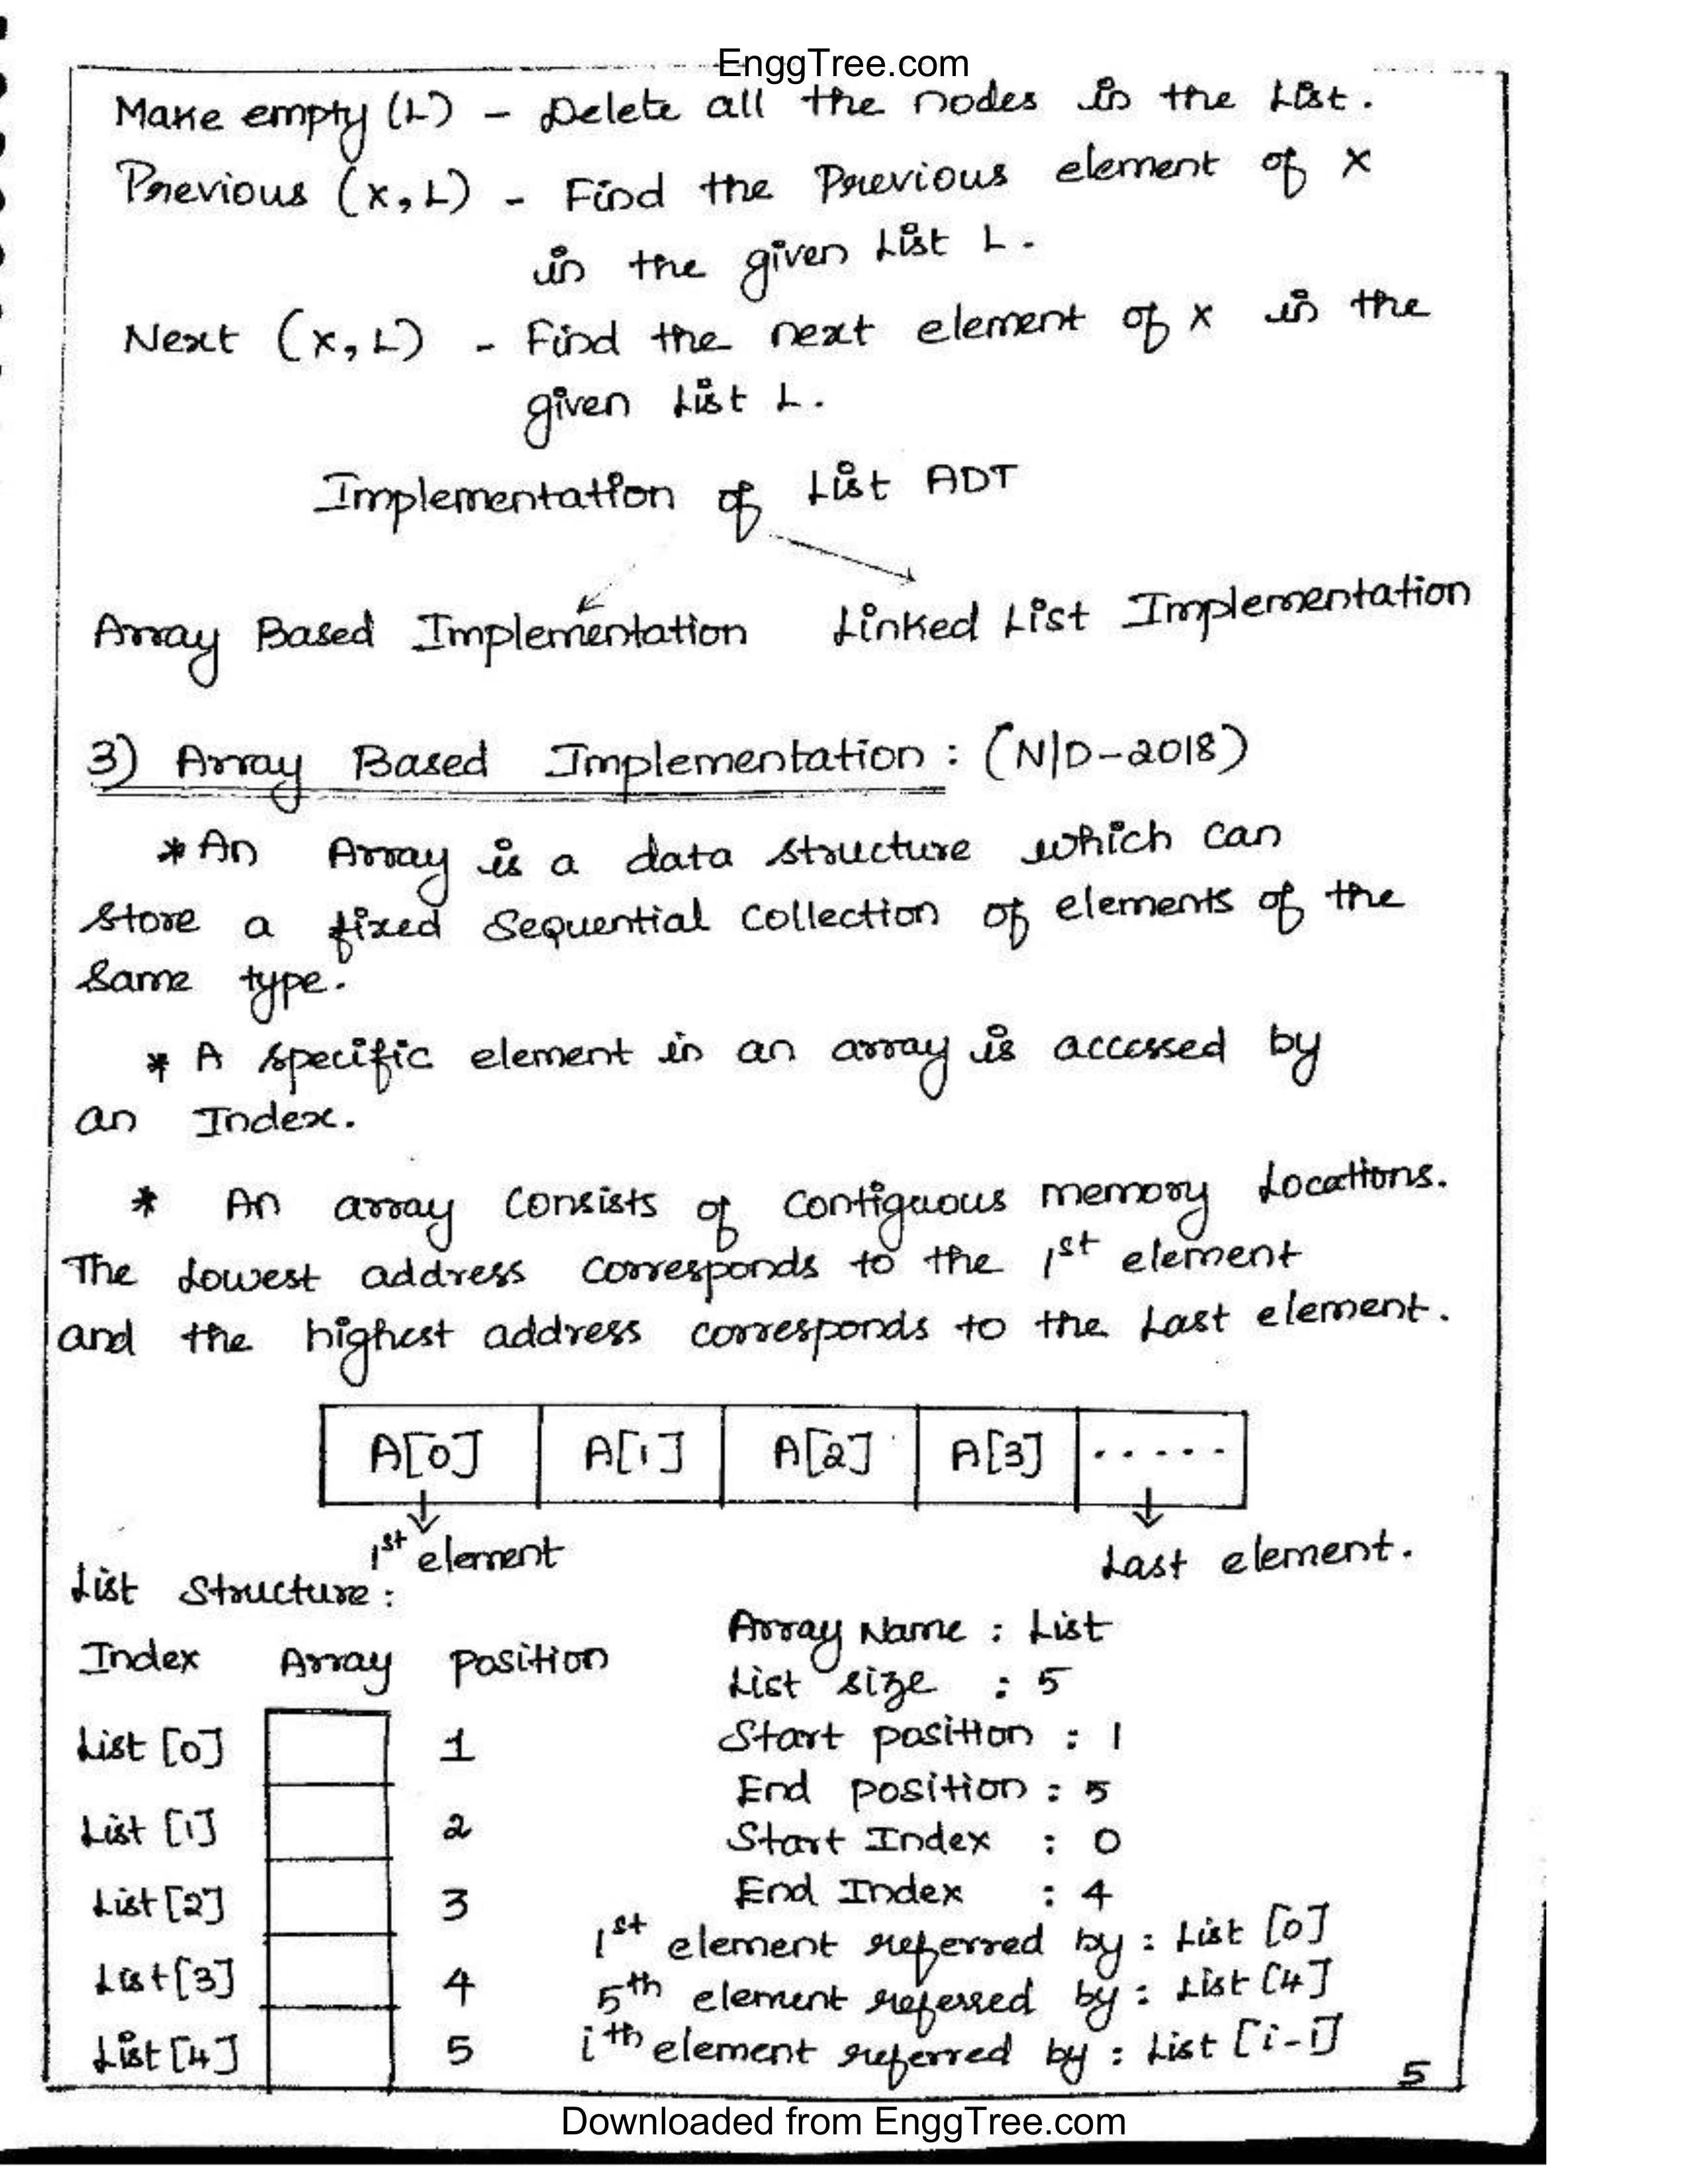 EnggTree.com
Make empty (L) - Delete all the nodes in the List.
Previous (X, L) - Find the Previous element of X
in the given List L.
Next (X, L) - Find the next element of X in the
given List L.
Implementation of List ADT
Array Based Implementation Linked List Implementation
3) Array Based Implementation : (N/D-2018)
* An Array is a data structure which can
store a fixed Sequential Collection of elements of the
Same type.
* A specific element in an array is accessed by
an Index.
* An array consists of contiguous memory Locations.
The Lowest address corresponds to the 1st element
and the highest address corresponds to the Last element.
A[0] A[1] A[2] A[3] .....
1st element Last element.
List Structure :
Index Array position
List [0] 1
List [1] 2
List [2] 3
List [3] 4
List [4] 5
Array Name : List
List size : 5
Start position : 1
End position : 5
Start Index : 0
End Index : 4
1st element referred by : List [0]
5th element referred by : List [4]
ith element referred by : List [i-1]
5
Downloaded from EnggTree.com